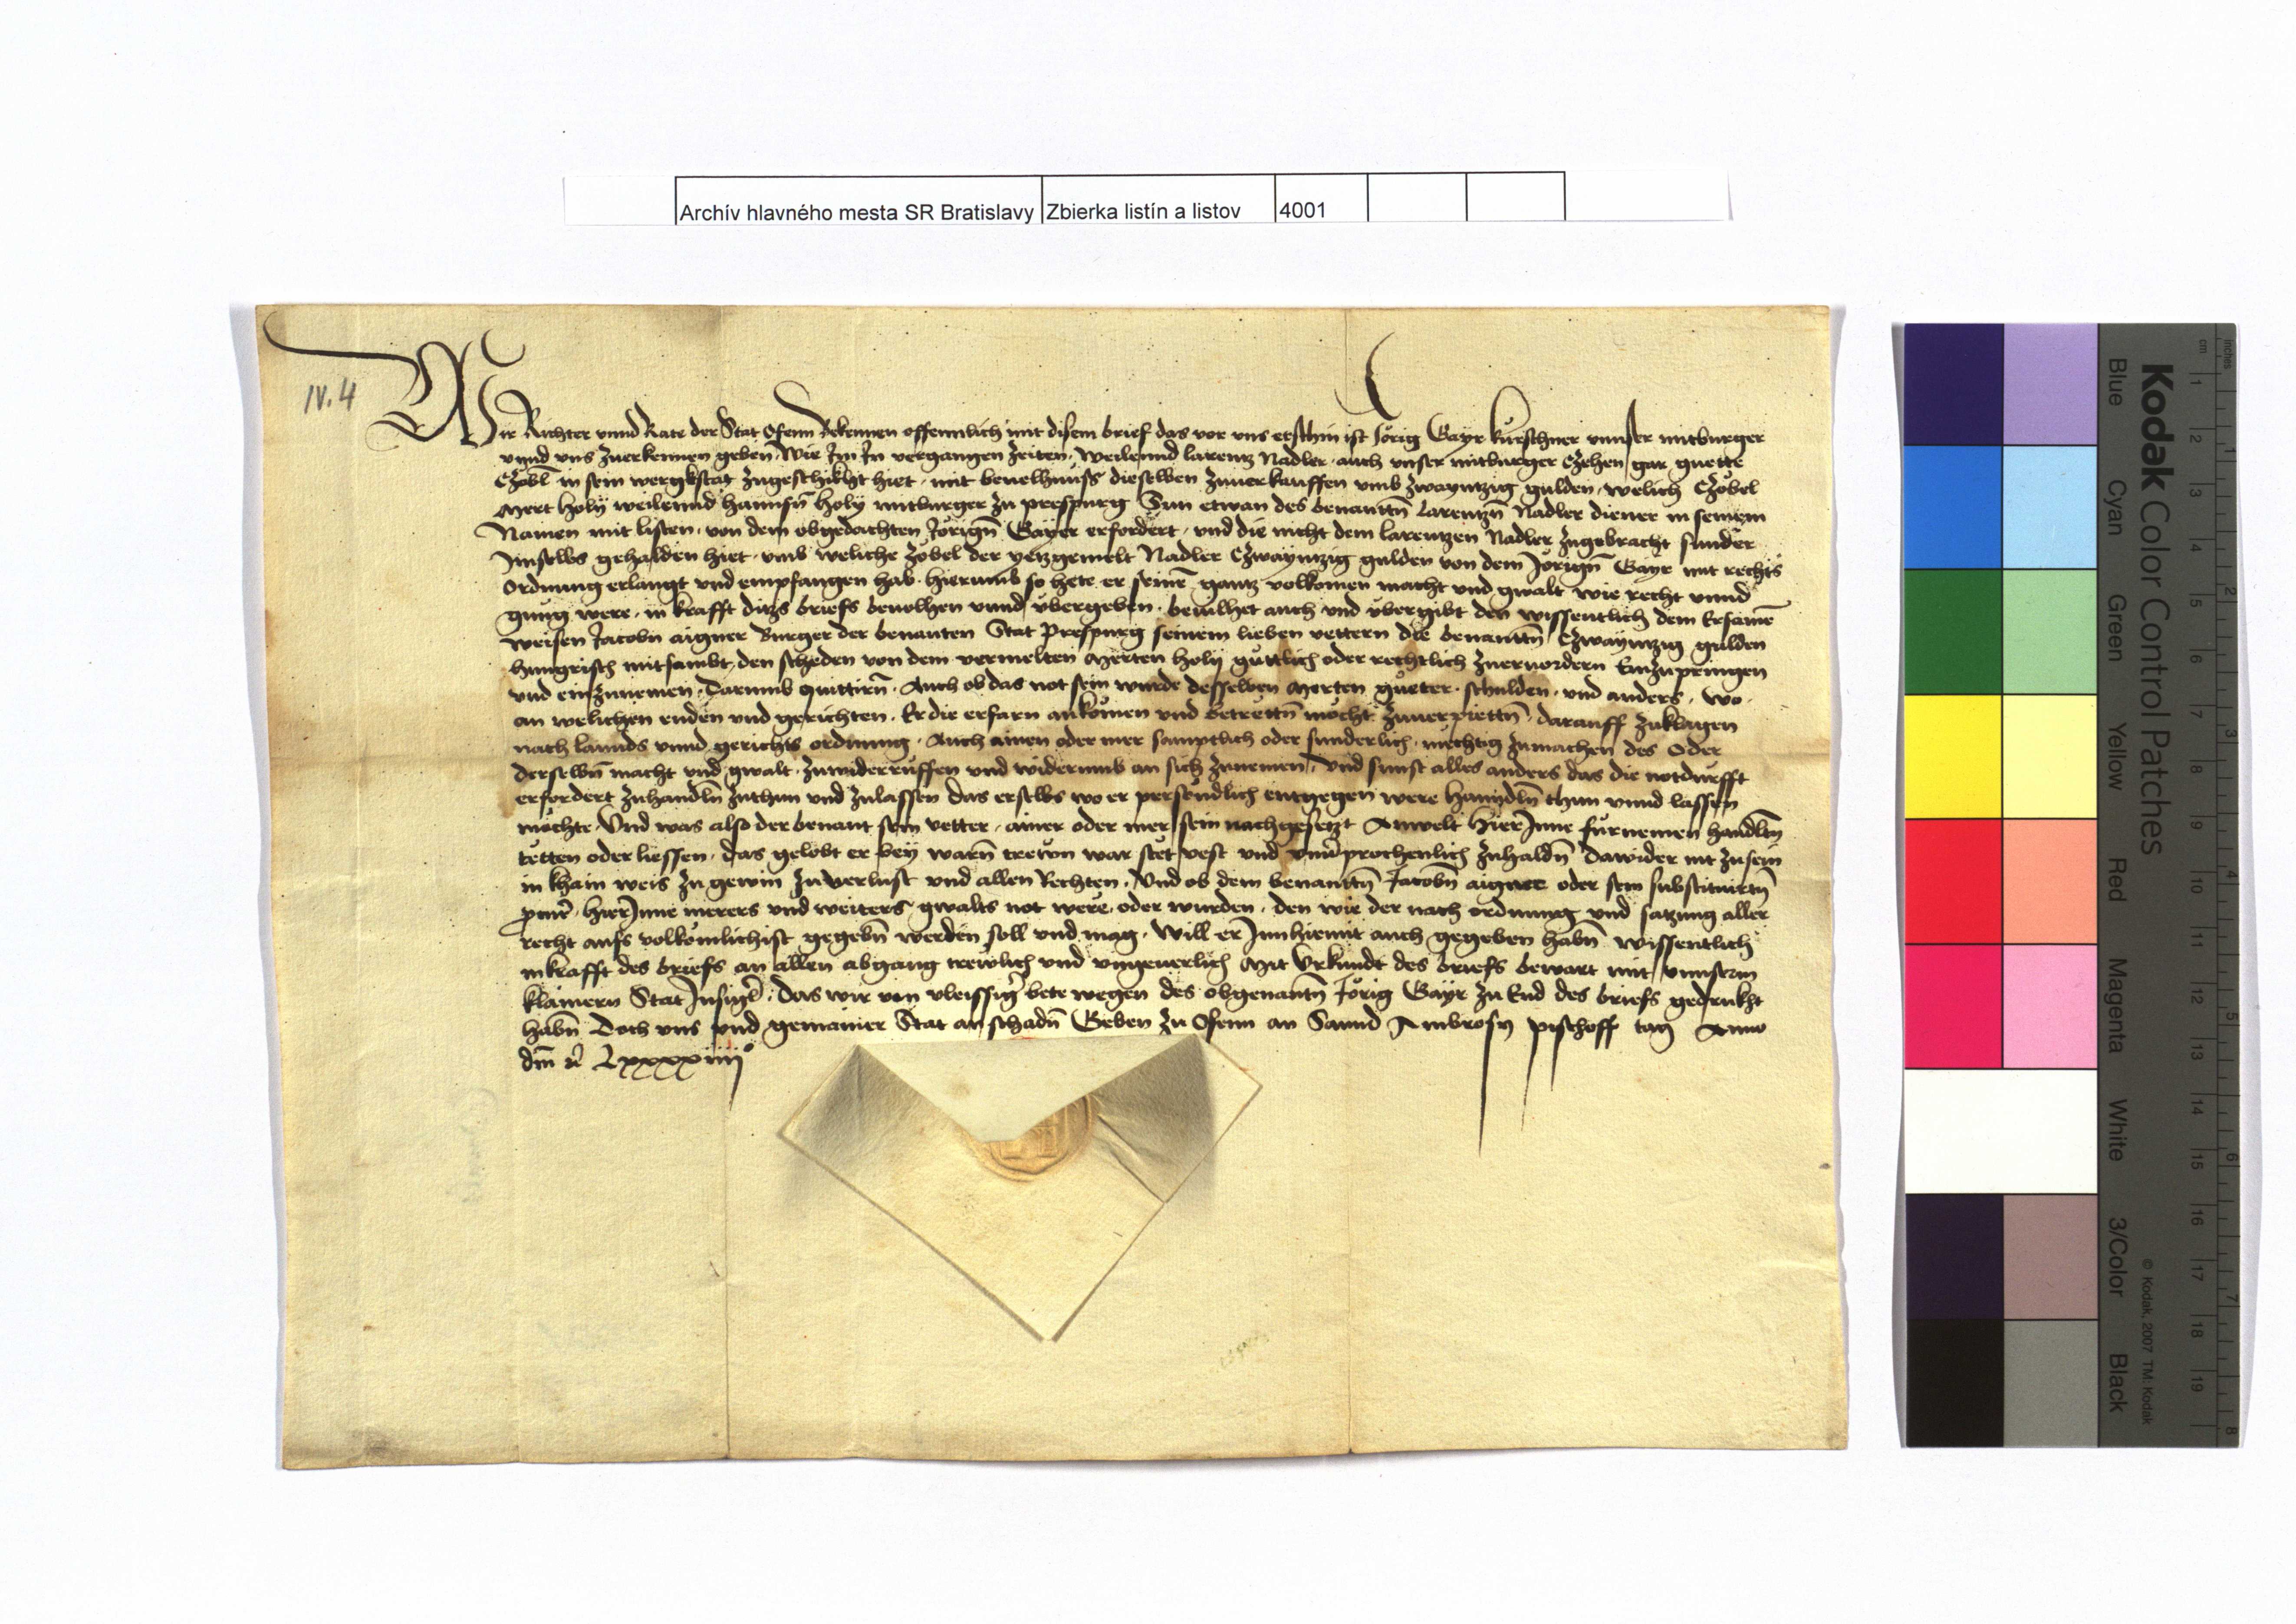 Archív hlavného mesta SR Bratislavy Zbierka listín a listov 4001
IV. 4
Wir Richter vnnd Rate der Stat Ofenn Bekennen offennlich mit disem brief das vor vns erschin ist Jorig Gayr kurschner vnnser mitburger
vnnd vns zuerkennen geben Wie Im In vergangen zeiten weilennd larentz Nadler auch vnser mitburger Czehen gar guette
Czobl in sein wergkstat zugeschikht hiet mit beuelhnuss dieselben zuuerkauffen vmb zwayntzig gulden welich Czobel
Mert Holy weilennd hannsn Holy mitburger zu prespurg Sun etwan des benantn Larentzn Nadler diener in seinem
Namen mit listen von dem obgedachten Jorign Gayer erfordert vnd die nicht dem larentzen Nadler zugebracht sunder
Imselbs gehalden hiet vmb weliche zobel der yetzgemelt Nadler Czwayntzig gulden von dem Jorign Gayr mit rechts
Ordnung erlangt vnd empfangen hab hierumb so hete er seine gantz volkomen macht vnd gwalt wie recht vnnd
gnug were in krafft ditzs briefs beuolhen vnnd vbergeben beuilhet auch vnd vbergibt den wissentlich dem Ersame
weisen Jacobn aigner Burger der benanten Stat Prespurg seinem lieben vettern die benanttn Czwayntzig gulden
hungrisch mitsambt den scheden von dem vermelten Merten Holy guttlich oder rechtlich zueruordern Einzupringen
vnd einzunemen Darumb quittirn Auch ob das not sein wurde desselben Merten gueter schulden vnd anders wo
an welichen enden vnd gerichten Er die erfarn ankomen vnd betrettn mocht zuuerpiettn darauff zuklagen
nach lannds vnnd gerichts ordnung Auch ainen oder mer samptlich oder sunderlich mechtig zumachen des Oder
derselbn macht vnd gwalt zuwiderruffen vnd widerumb an sich zunemen Vnd sunst alles anders das die notdurfft
erfordert zuhandln zuthun vnd zulassen das erselbs wo er persondlich entgegen were hanndln thun vnnd lassen
mochte Vnd was also der benant sein vetter ainer oder mer sein nachgesetzt Anwelt HierInne furnemen handltn
tetten oder liessen das gelobt er bey warn trewn war stet vest vnd vnuprochenlich zuhaldn dawider nit zusein
in khain weis zu gewin zu verlust vnd allen Rechten Vnd ob dem benanttn Jacobn aigner oder sein substituirtn
HierInne merers vnd weiters gwalts not were oder wurden den wie der nach ordnung vnd satzung aller
recht aufs volkomlichist gegebn werden soll vnd mag Will er Inn hiemit auch gegeben habn wissentlich
inkrafft des briefs an allen abgang trewlich vnd vngeuerlich Mit Vrkundt des briefs bewart mit vnnserm
klainern Stat Insigl das wir von vleissiger bete wegen des obgenantn Jorig Gayr zu End des briefs gedrukht
habn Doch vns vnd gemainer Stat an schadn Geben zu Ofenn an Sannd Ambrosy pischoff tag Anno
dm Lxxxxiiij°
Kodak Color Control Patches
Blue Cyan Green Yellow Red Magenta White 3/Color Black
© Kodak, 2007 TM: Kodak
cm 1 2 3 4 5 6 7 8 9 10 11 12 13 14 15 16 17 18 19
inches 1 2 3 4 5 6 7 8